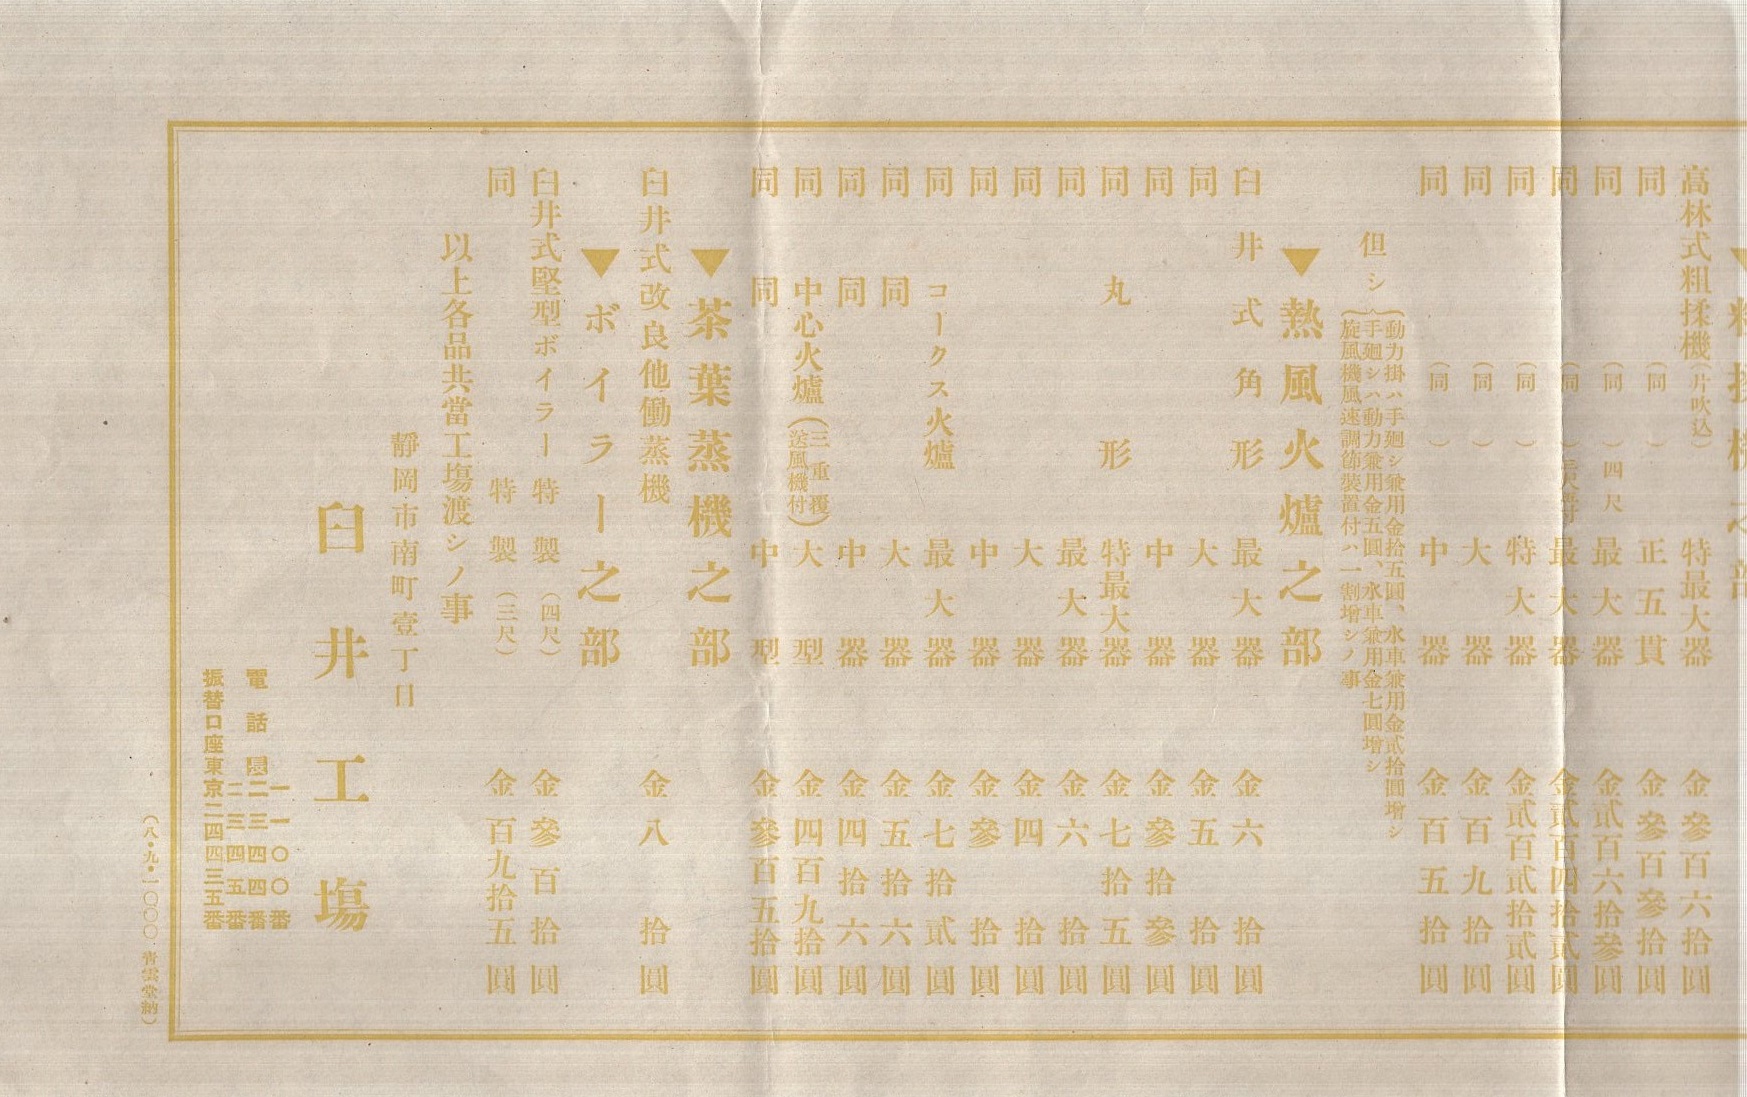 高林式粗揉機（片吹込）特最大器 金參百六拾圓
同（同）正五貫 金參百參拾圓
同（同）四尺 最大器 金貳百六拾參圓
同（同） 最大器 金貳百四拾貳圓
同（同）特大器 金貳百貳拾貳圓
同（同）大器 金百九拾圓
同（同）中器 金百五拾圓
但シ
動力掛ハ手廻シ兼用金拾五圓、水車兼用金貳拾圓增シ
手廻シハ動力兼用金五圓、水車兼用金七圓增シ
旋風機風速調節裝置付ハ一割增シノ事
▼熱風火爐之部
臼井式角形 最大器 金六拾圓
同 大器 金五拾圓
同 中器 金參拾參圓
同 丸形 特最大器 金七拾五圓
同 最大器 金六拾圓
同 大器 金四拾圓
同 中器 金參拾圓
同 コークス火爐 最大器 金七拾貳圓
同 同 大器 金五拾六圓
同 同 中器 金四拾六圓
同 中心火爐（三重覆送風機付）大型 金四百九拾圓
同 同 中型 金參百五拾圓
▼茶葉蒸機之部
臼井式改良他働蒸機 金八拾圓
▼ボイラー之部
臼井式堅型ボイラー 特製（四尺） 金參百拾圓
同 特製（三尺） 金百九拾五圓
以上各品共當工塲渡シノ事
靜岡市南町壹丁目
臼井工塲
一一〇〇番
電話 二三四四番
二三四五番
振替口座東京二四四三五番
（八・九・一〇〇〇 靑雲堂納）